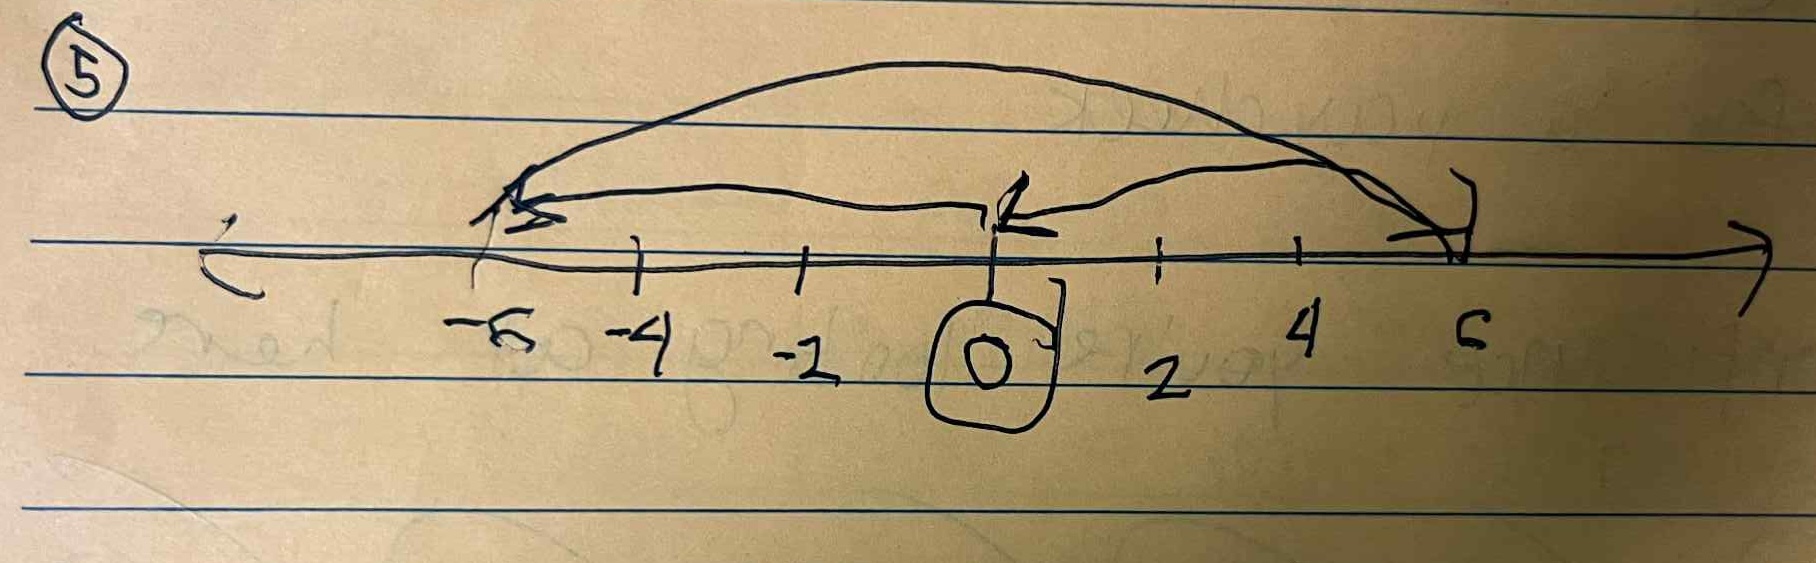 5
-6 -4 -2 0 2 4 6